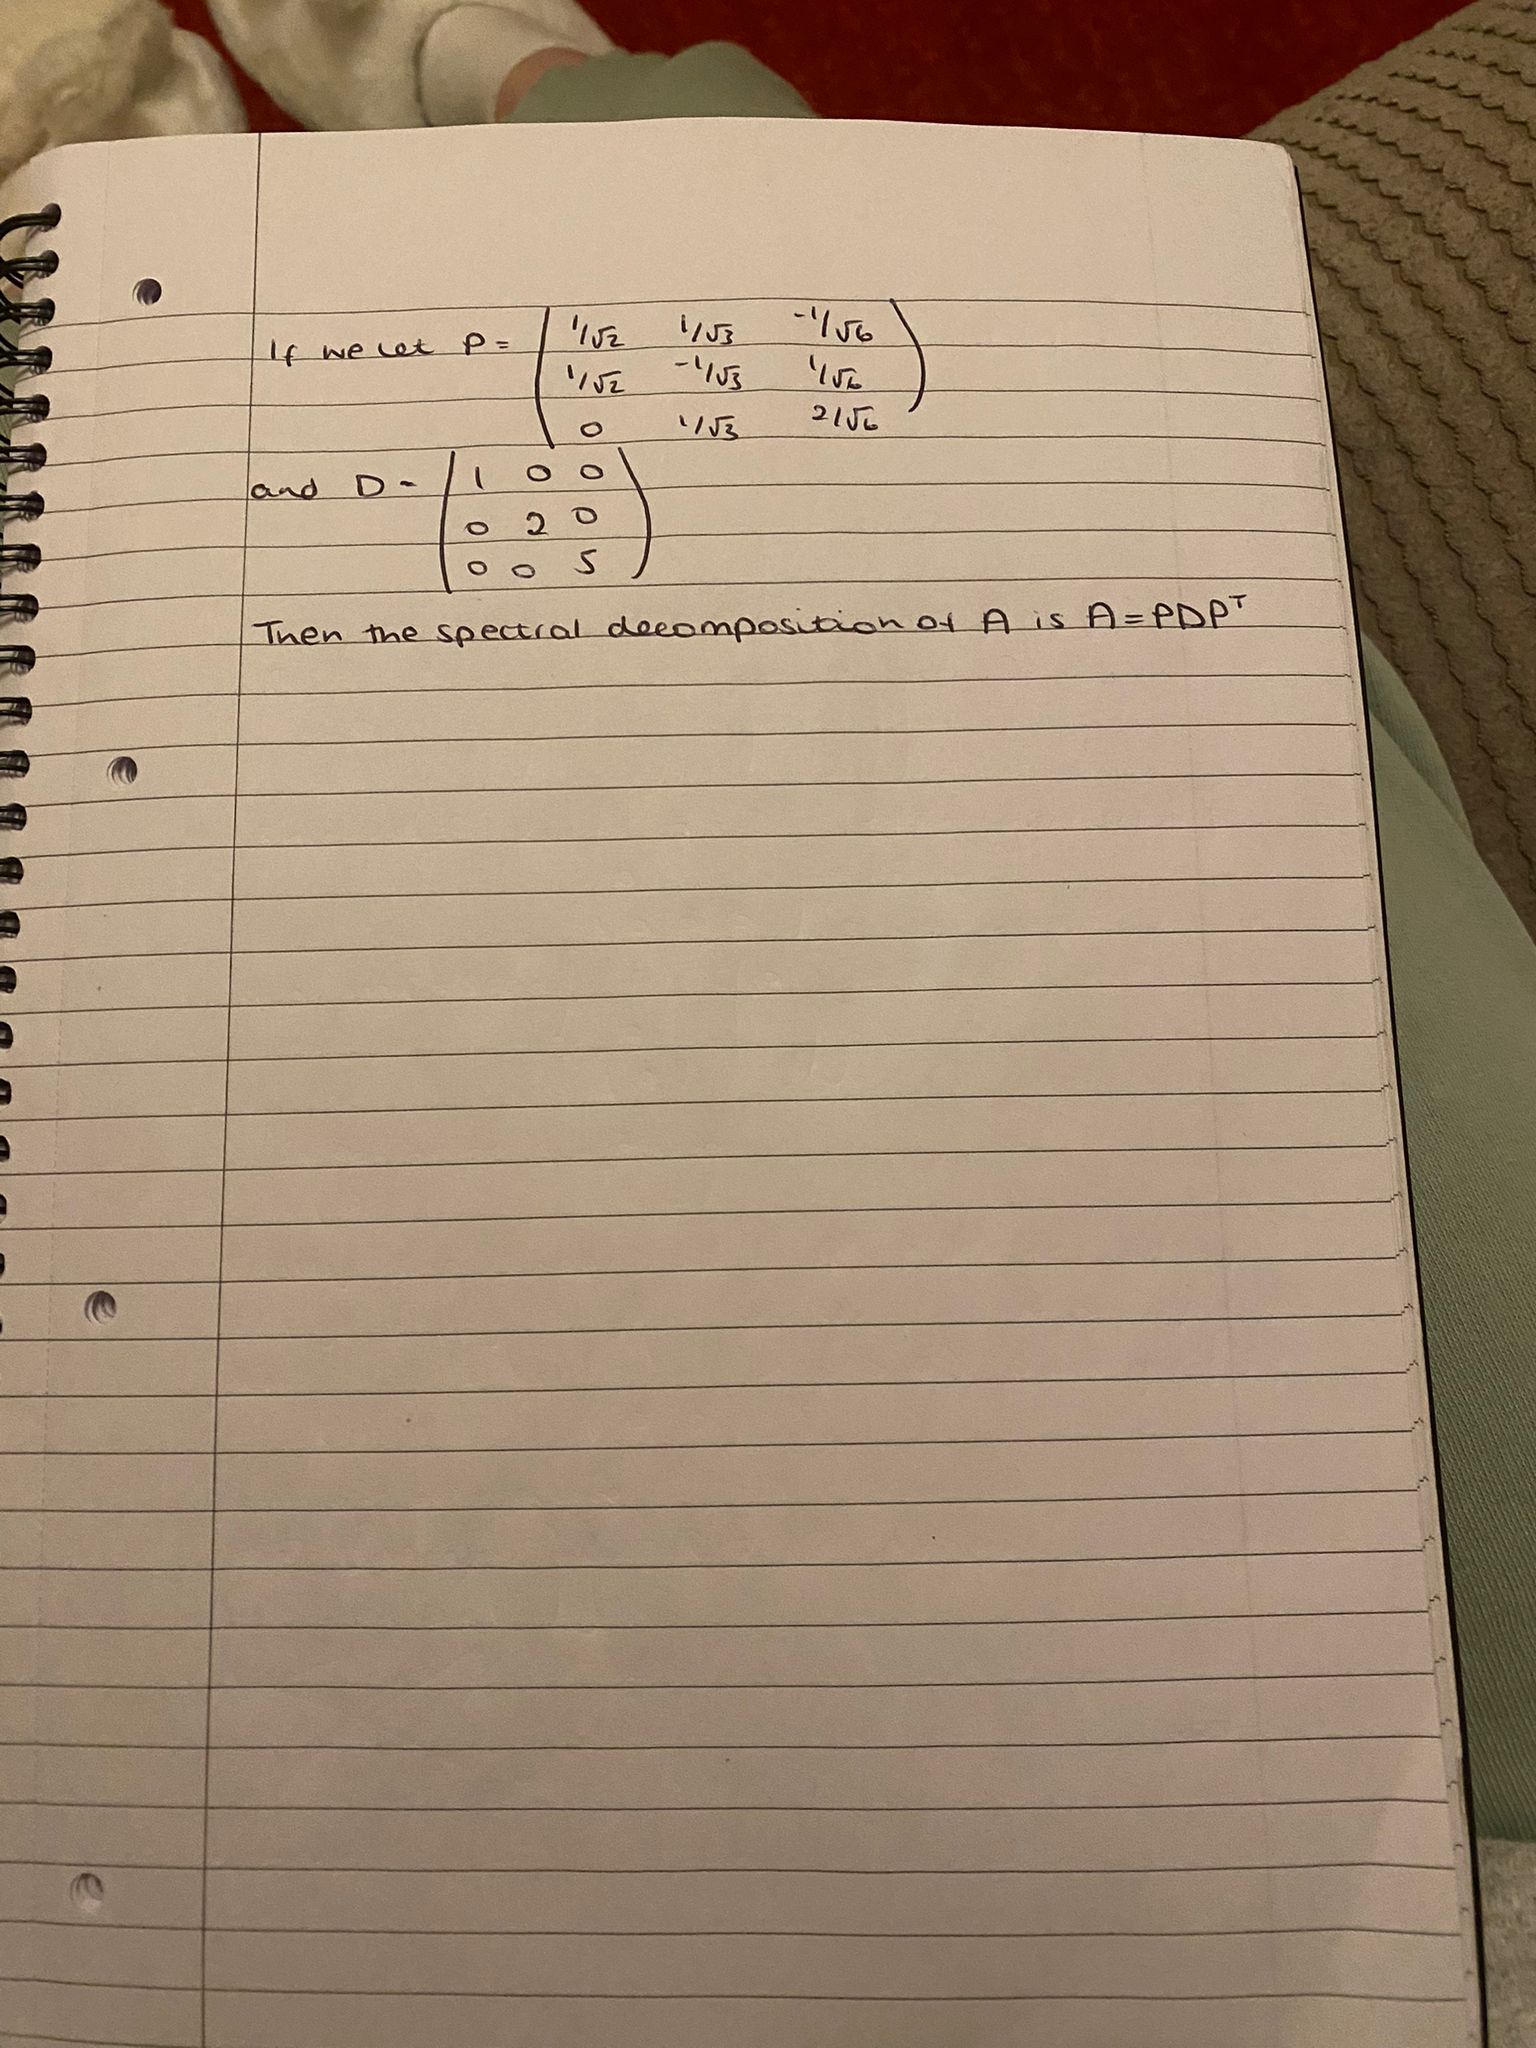 If we let P = ( 1/√2 1/√3 -1/√6
1/√2 -1/√3 1/√6
0 1/√3 2/√6 )
and D = ( 1 0 0
0 2 0
0 0 5 )
Then the spectral decomposition of A is A = PDPᵀ